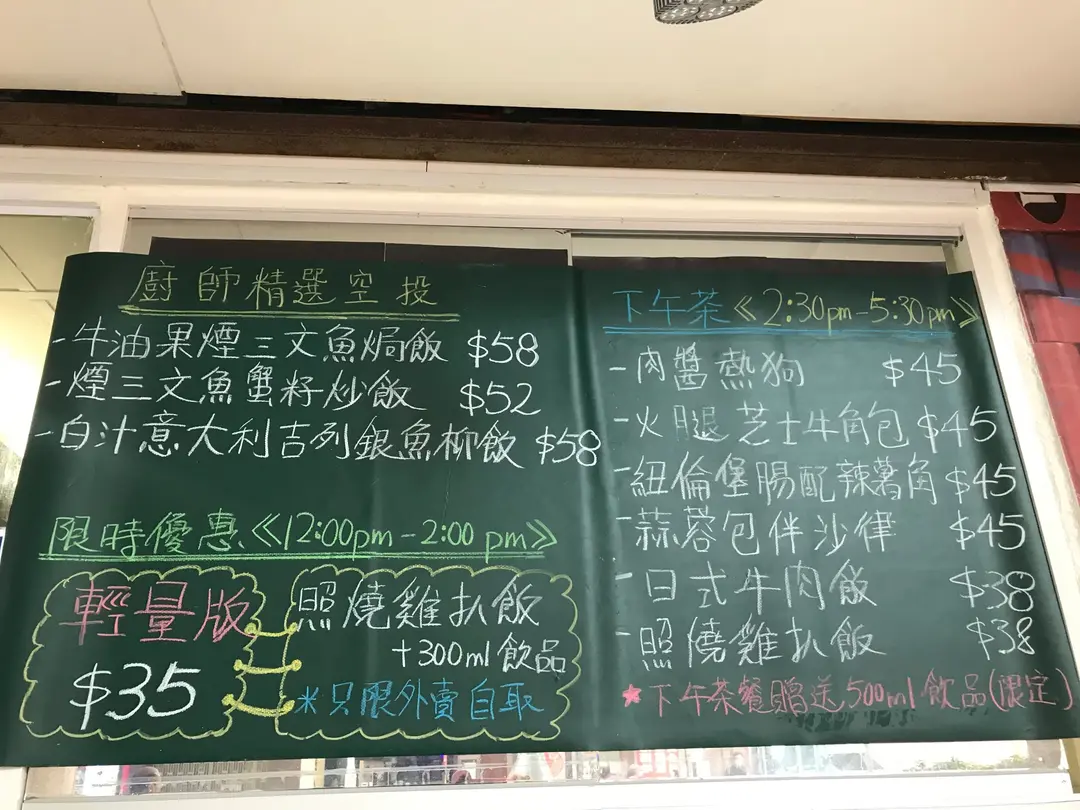 廚師精選空投
-牛油果煙三文魚焗飯 $58
-煙三文魚蟹籽炒飯 $52
-白汁意大利吉列銀魚柳飯 $58
限時優惠《12:00pm-2:00pm》
輕量版
$35
照燒雞扒飯
+300ml飲品
*只限外賣自取
下午茶《2:30pm-5:30pm》
-肉醬熱狗 $45
-火腿芝士牛角包 $45
-紐倫堡腸配辣薯角 $45
-蒜蓉包伴沙律 $45
-日式牛肉飯 $38
-照燒雞扒飯 $38
★下午茶餐贈送500ml飲品(限定)